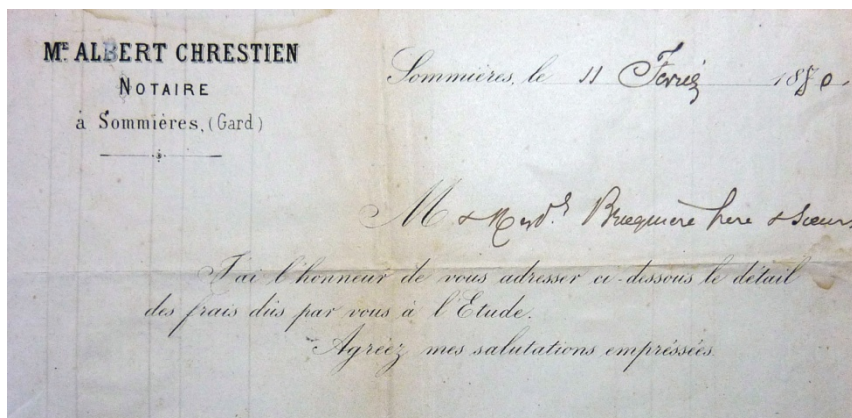 Mᴱ ALBERT CHRESTIEN
NOTAIRE
à Sommières, (Gard)
Sommières, le 11 Fevrier 1880
M & Mesd.s Bruguière frere & Sœurs
J'ai l'honneur de vous adresser ci-dessous le détail
des frais dûs par vous à l'Etude.
Agréez mes salutations empréssées.